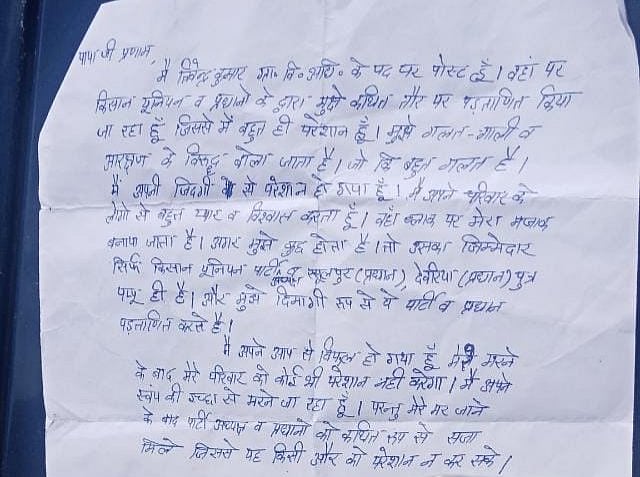 पापा जी प्रणाम,
मै त्रिवेन्द्र कुमार ग्रा. वि. अधि. के पद पर पोस्ट हूँ। वहां पर
किसान यूनियन व प्रधानो के द्वारा मुझे कथित तौर पर प्रड़ताणित किया
जा रहा हूँ जिससे में बहुत ही परेशान हूँ। मुझे गलत-गाली व
आरक्षण के विरूद्ध बोला जाता है। जो कि बहुत गलत है।
मैं अपनी जिंदगी से परेशान हो गया हूँ। मै अपने परिवार के
लोगो से बहुत प्यार व विश्वास करता हूँ। वहाँ ब्लाक पर मेरा मजाक
बनाया जाता है। अगर मुझे कुछ होता है। तो उसका जिम्मेदार
सिर्फ किसान यूनियन पार्टी अध्यक्ष व रसूलपुर (प्रधान), देवरिया (प्रधान) पुत्र
पप्पू ही है। और मुझे दिमागी रूप से ये पार्टी व प्रधान
प्रड़ताणित करते है।
मै अपने आप से विफल हो गया हूँ मेरे मरने
के बाद मेरे परिवार को कोई भी परेशान नही करेगा। मै अपने
स्वंय की इच्छा से मरने जा रहा हूँ। परन्तु मेरे मर जाने
के बाद पार्टी अध्यक्ष व प्रधानो को कथित रूप से सजा
मिले जिससे यह किसी और को परेशान न कर सके।